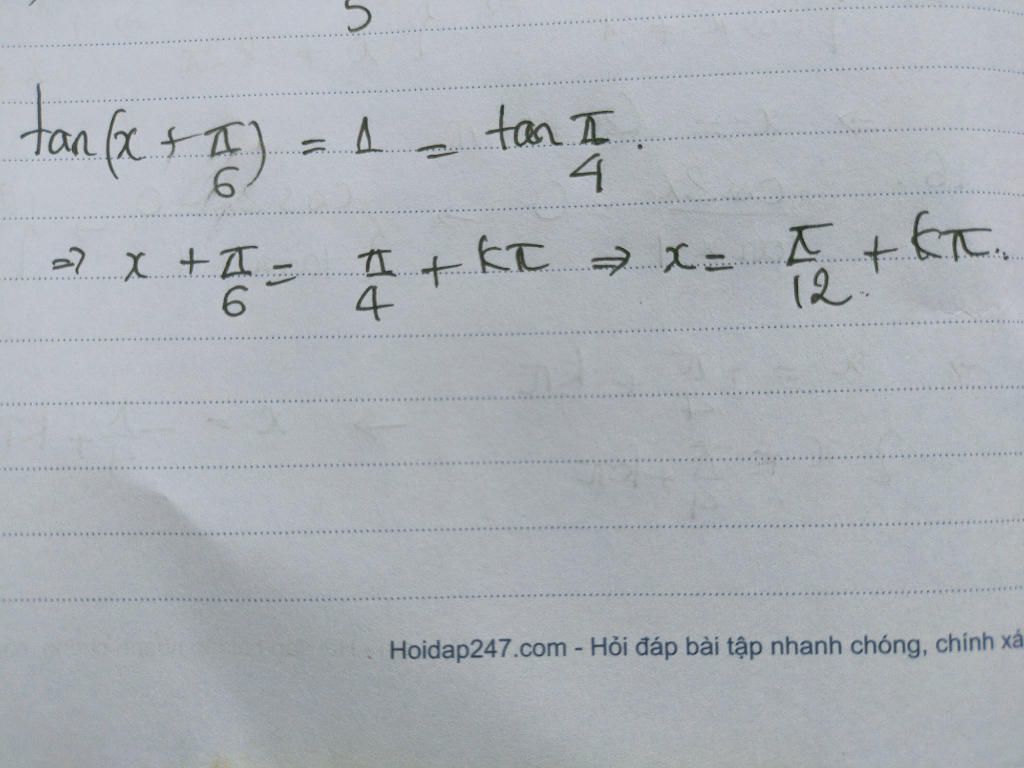 5
tan(x + π/6) = 1 = tan π/4.
⇒ x + π/6 = π/4 + kπ ⇒ x = π/12 + kπ.
Hoidap247.com - Hỏi đáp bài tập nhanh chóng, chính xá